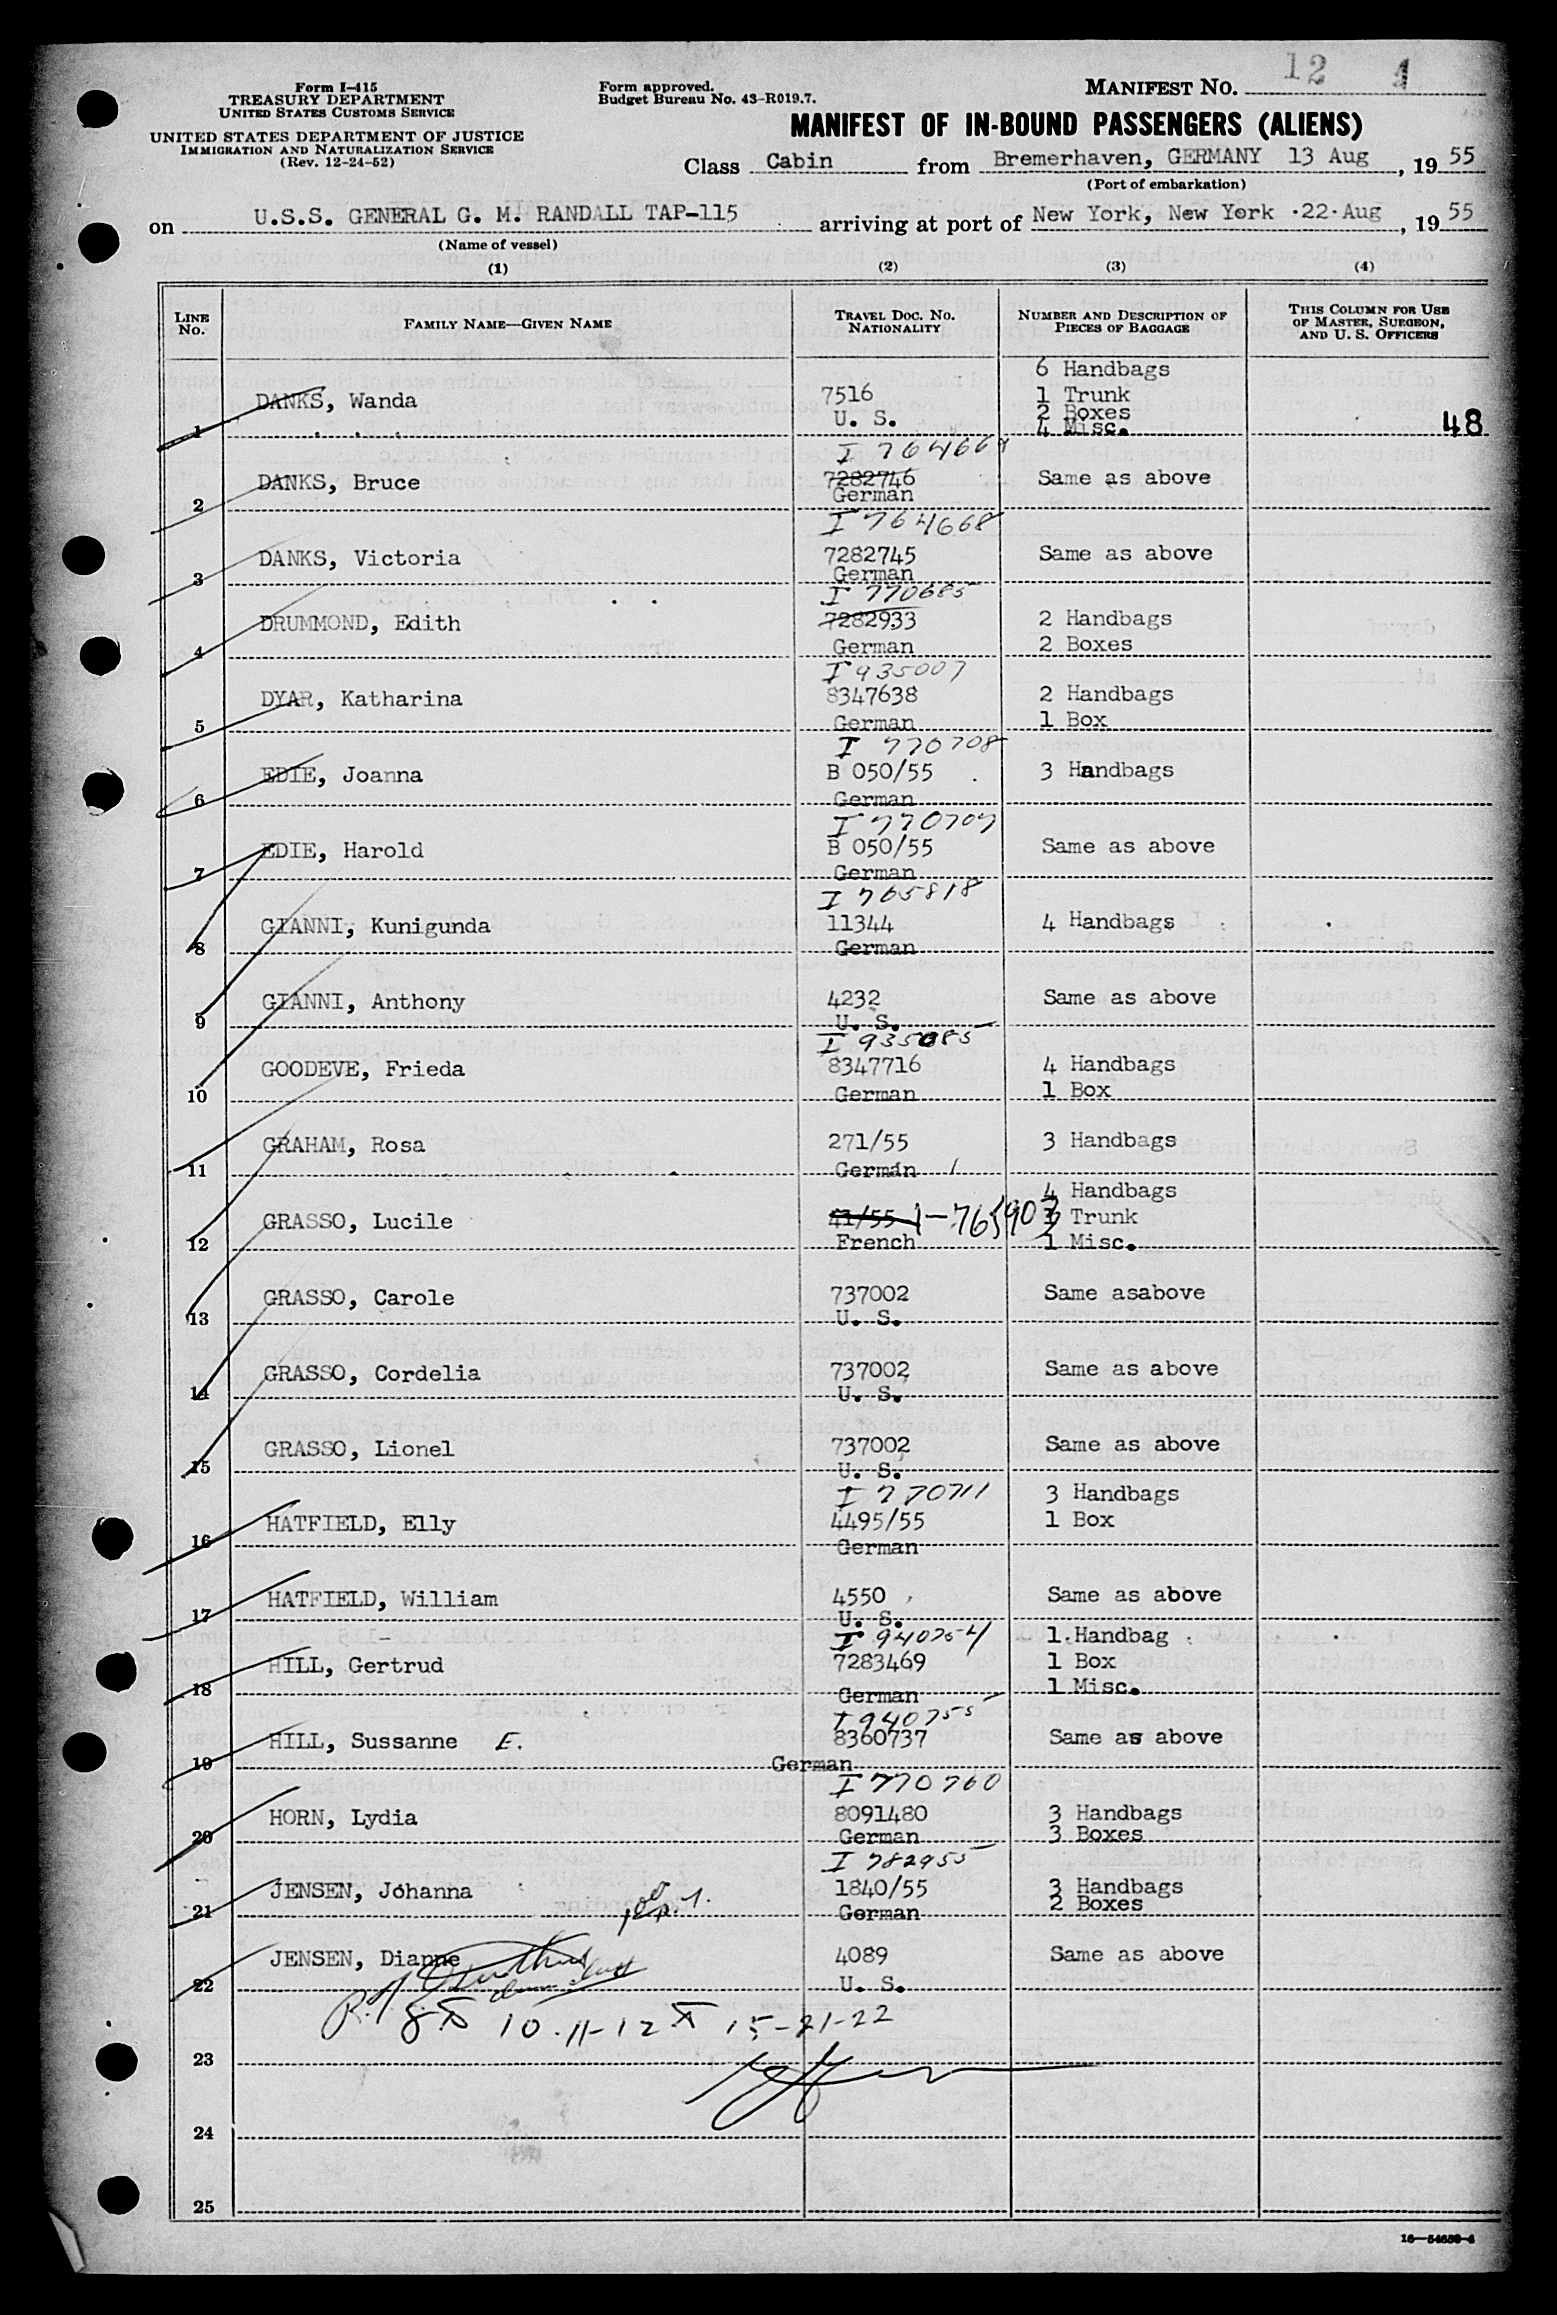 Form I-415
TREASURY DEPARTMENT
UNITED STATES CUSTOMS SERVICE
UNITED STATES DEPARTMENT OF JUSTICE
IMMIGRATION AND NATURALIZATION SERVICE
(Rev. 12-24-52)
Form approved.
Budget Bureau No. 43-R019.7.
MANIFEST NO. 12 1
MANIFEST OF IN-BOUND PASSENGERS (ALIENS)
Class Cabin from Bremerhaven, GERMANY 13 Aug, 19 55
(Port of embarkation)
on U.S.S. GENERAL G. M. RANDALL TAP-115 arriving at port of New York, New York 22 Aug, 19 55
(Name of vessel)
(1) (2) (3) (4)
LINE NO. FAMILY NAME—GIVEN NAME TRAVEL DOC. NO. NATIONALITY NUMBER AND DESCRIPTION OF PIECES OF BAGGAGE THIS COLUMN FOR USE OF MASTER, SURGEON, AND U. S. OFFICERS
6 Handbags
1 DANKS, Wanda 7516 1 Trunk
U. S. 2 Boxes
4 Misc. 48
I 764669
2 DANKS, Bruce 7282746 Same as above
German
I 764668
3 DANKS, Victoria 7282745 Same as above
German
I 770685
4 DRUMMOND, Edith 7282933 2 Handbags
German 2 Boxes
I 935007
5 DYAR, Katharina 8347638 2 Handbags
German 1 Box
I 770708
6 EDIE, Joanna B 050/55 3 Handbags
German
I 770707
7 EDIE, Harold B 050/55 Same as above
German
I 765818
8 GIANNI, Kunigunda 11344 4 Handbags
German
9 GIANNI, Anthony 4232 Same as above
U. S.
I 935085
10 GOODEVE, Frieda 8347716 4 Handbags
German 1 Box
11 GRAHAM, Rosa 271/55 3 Handbags
German
4 Handbags
12 GRASSO, Lucile 41/55 I-765903 Trunk
French 1 Misc.
13 GRASSO, Carole 737002 Same asabove
U. S.
14 GRASSO, Cordelia 737002 Same as above
U. S.
15 GRASSO, Lionel 737002 Same as above
U. S.
I 770711 3 Handbags
16 HATFIELD, Elly 4495/55 1 Box
German
17 HATFIELD, William 4550 Same as above
U. S.
I 940754 1 Handbag
18 HILL, Gertrud 7283469 1 Box
German 1 Misc.
I 940755
19 HILL, Sussanne E. 8360737 Same as above
German
I 770760
20 HORN, Lydia 8091480 3 Handbags
German 3 Boxes
I 782955
21 JENSEN, Johanna 1840/55 3 Handbags
German 2 Boxes
22 JENSEN, Dianne 4089 Same as above
U. S.
10-11-12 15-21-22
23
24
25
16—54650-4